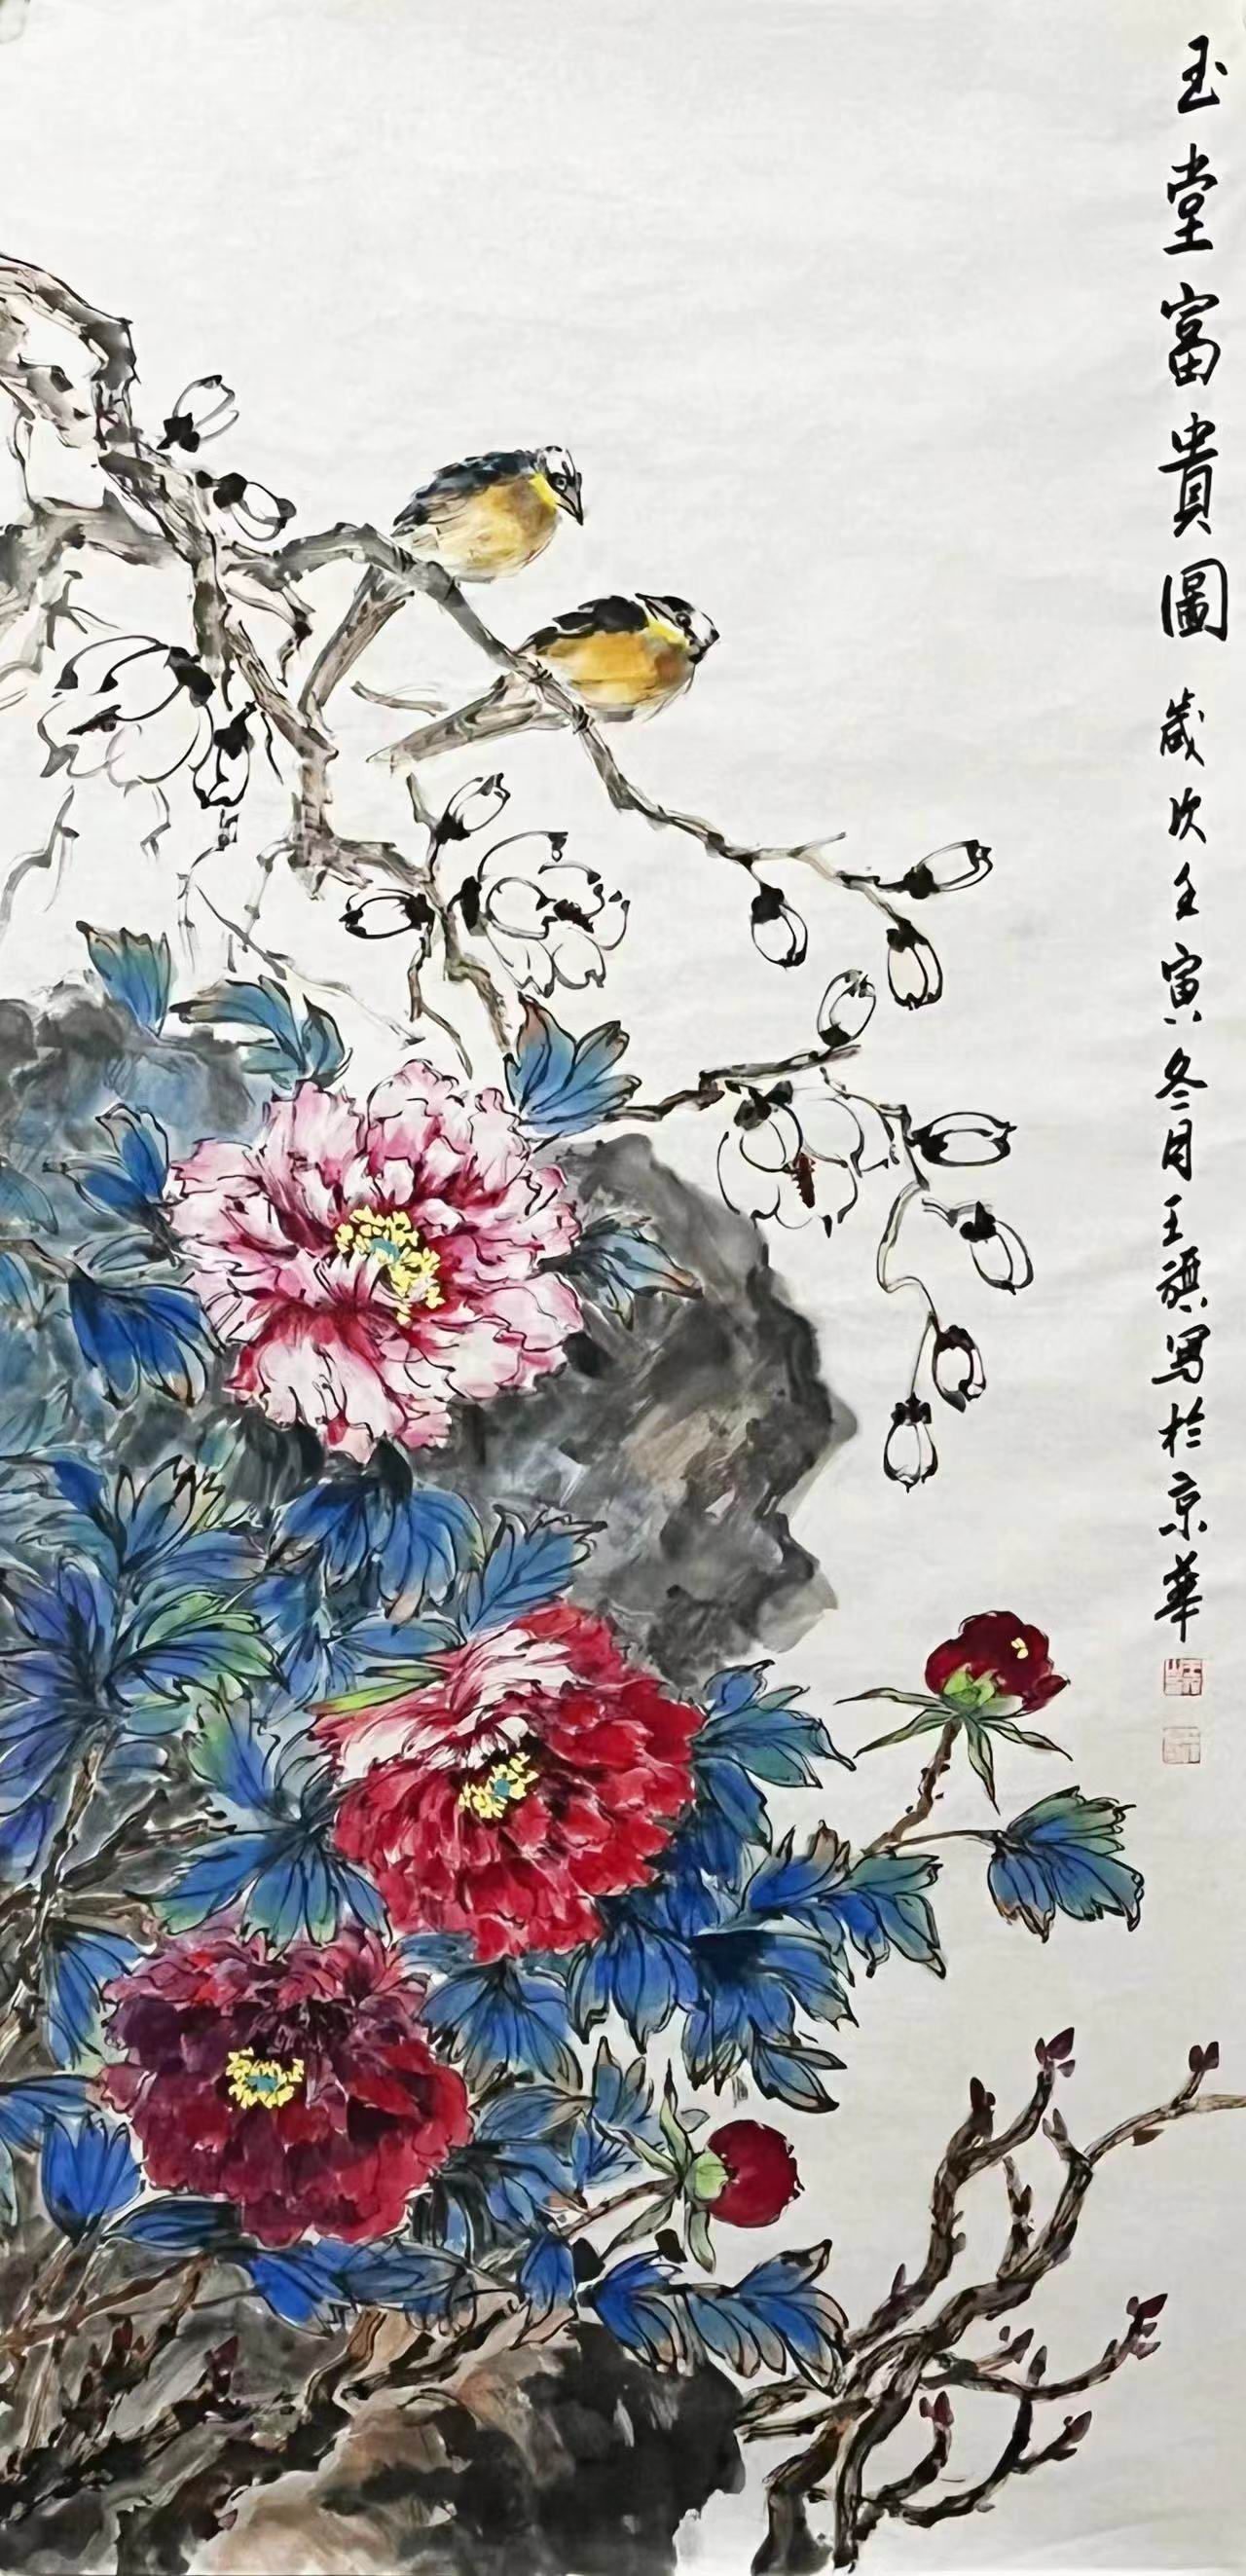 玉堂富貴圖 歲次壬寅冬月王旗写於京華